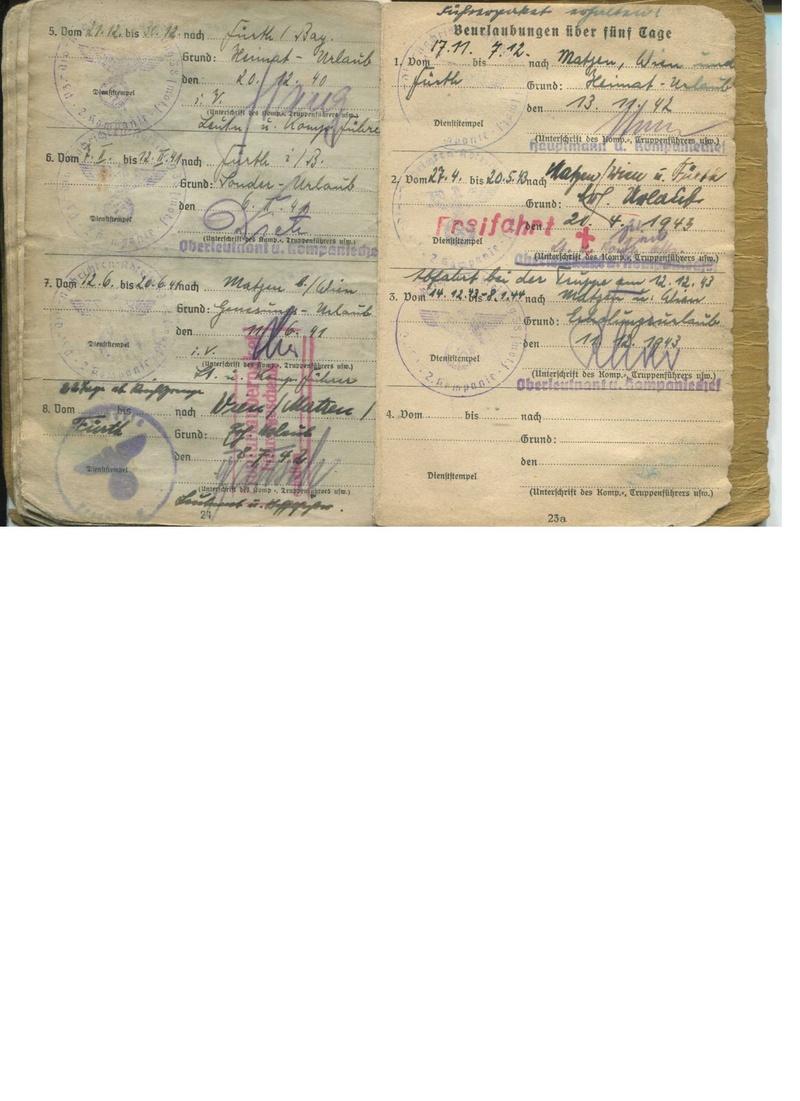 5. Vom 21.12. bis 31.12. nach Fürth / Bay.
Grund: Heimat-Urlaub
den 20. 12. 40
Dienststempel
i. V.
(Unterschrift des Komp.-, Truppenführers usw.)
Leutn. u. Komp. führer
6. Vom bis 12. II. 41 nach Fürth i/B.
Grund: Sonder-Urlaub
den 6. II. 41
Dienststempel
(Unterschrift des Komp.-, Truppenführers usw.)
Oberleutnant u. Kompaniechef
7. Vom 12.6. bis 20.6.41 nach Matzen b./Wien
Grund: Genesungs-Urlaub
den 11. 6. 41
Dienststempel
i. V.
(Unterschrift des Komp.-, Truppenführers usw.)
Lt. u. Komp. führer
8. Vom bis nach Wien / Matzen /
Fürth
Grund: Urlaub
den 8. 7. 42
Dienststempel
(Unterschrift des Komp.-, Truppenführers usw.)
Leutnant u.
Führerpaket erhalten!
Beurlaubungen über fünf Tage
1. Vom 17.11. bis 7.12. nach Matzen, Wien und
Fürth
Grund: Heimat-Urlaub
den 13. 11. 42
Dienststempel
(Unterschrift des Komp.-, Truppenführers usw.)
Hauptmann u. Kompaniechef
2. Vom 27.4. bis 20.5.43 nach Matzen/Wien u. Fürth
Grund: Urlaub
Freifahrt
den 20. 4. 1943
Dienststempel
(Unterschrift des Komp.-, Truppenführers usw.)
Abfahrt bei der Truppe am 12.12.43
3. Vom 14.12.43-8.1.44 nach Matzen u. Wien
Grund: Erholungsurlaub
den 11. 12. 1943
Dienststempel
(Unterschrift des Komp.-, Truppenführers usw.)
Oberleutnant u. Kompaniechef
4. Vom bis nach
Grund:
den
Dienststempel
(Unterschrift des Komp.-, Truppenführers usw.)
23a